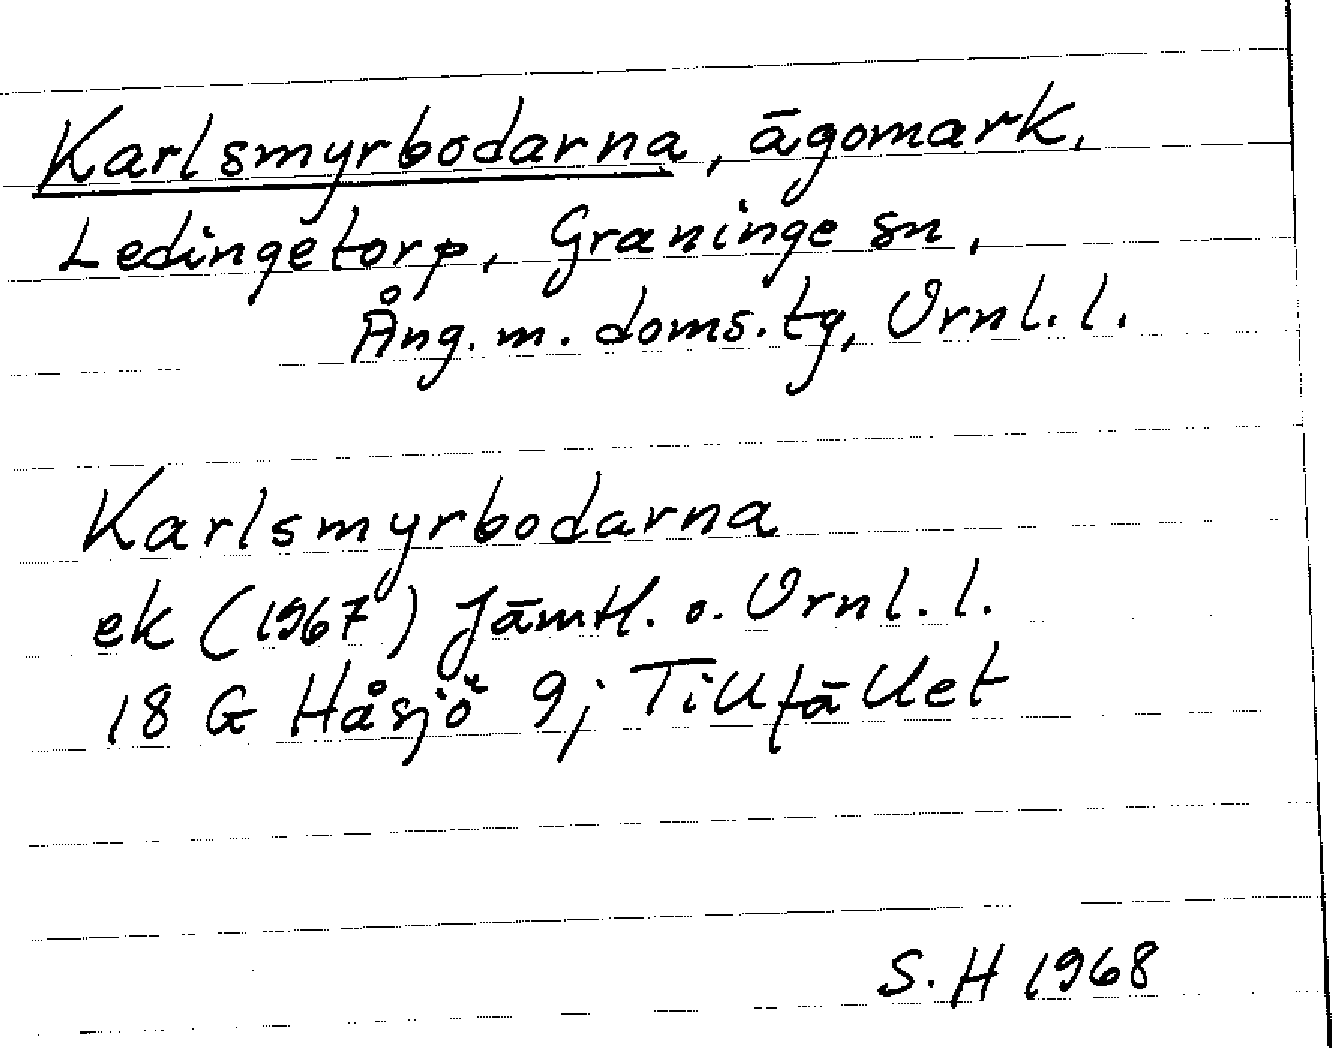 Karlsmyrbodarna, ägomark,
Ledingetorp, Graninge sn,
Ång. m. doms. tg, Vrnl. l.
Karlsmyrbodarna
ek (1967) Jämtl. o. Vrnl. l.
18 G Håsjö 9; Tillfället
S. H 1968